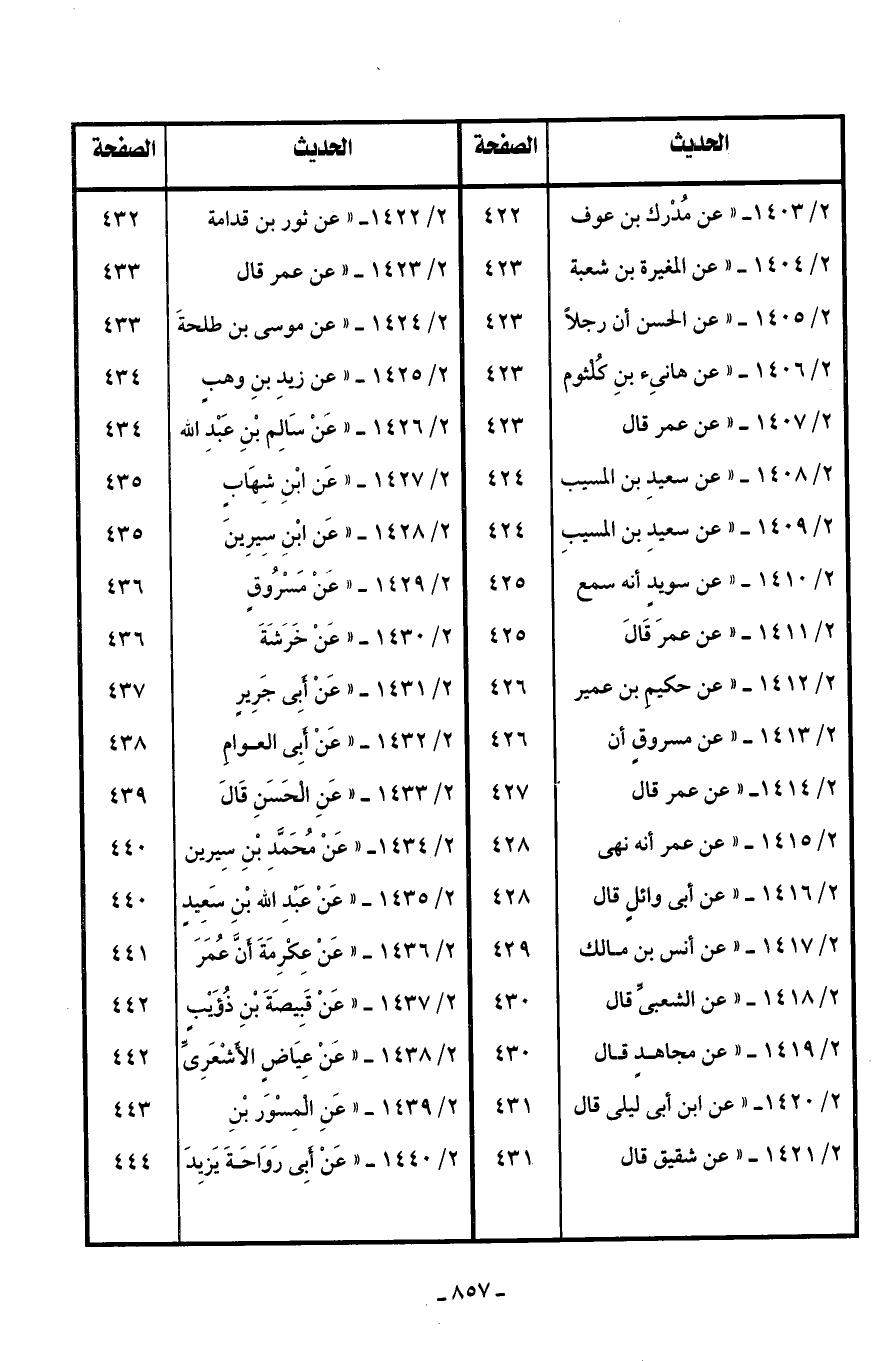 الحديث | الصفحة | الحديث | الصفحة
٢/ ١٤٠٣ـ « عن مُدْرك بن عوف | ٤٢٢ | ٢/ ١٤٢٢ـ « عن ثور بن قدامة | ٤٣٢
٢/ ١٤٠٤ ـ « عن المغيرة بن شعبة | ٤٢٣ | ٢/ ١٤٢٣ ـ « عن عمر قال | ٤٣٣
٢/ ١٤٠٥ ـ « عن الحسن أن رجلاً | ٤٢٣ | ٢/ ١٤٢٤ ـ « عن موسى بن طلحةَ | ٤٣٣
٢/ ١٤٠٦ ـ « عن هانىء بنِ كُلْثوم | ٤٢٣ | ٢/ ١٤٢٥ ـ « عن زيدِ بنِ وهبٍ | ٤٣٤
٢/ ١٤٠٧ ـ « عن عمر قال | ٤٢٣ | ٢/ ١٤٢٦ ـ « عَنْ سَالِمِ بْنِ عَبْدِ الله | ٤٣٤
٢/ ١٤٠٨ ـ « عن سعيدِ بن المسيب | ٤٢٤ | ٢/ ١٤٢٧ ـ « عَن ابْنِ شِهَابٍ | ٤٣٥
٢/ ١٤٠٩ ـ « عن سعيدِ بن المسيبِ | ٤٢٤ | ٢/ ١٤٢٨ ـ « عَن ابْنِ سِيرِينَ | ٤٣٥
٢/ ١٤١٠ ـ « عن سويدٍ أنه سمع | ٤٢٥ | ٢/ ١٤٢٩ ـ « عَنْ مَسْرُوقٍ | ٤٣٦
٢/ ١٤١١ ـ « عن عمرَ قَالَ | ٤٢٥ | ٢/ ١٤٣٠ ـ « عَنْ خَرَشَةَ | ٤٣٦
٢/ ١٤١٢ ـ « عن حكيمِ بن عمير | ٤٢٦ | ٢/ ١٤٣١ ـ « عَنْ أَبِى جَرِيرٍ | ٤٣٧
٢/ ١٤١٣ ـ « عن مسروقٍ أن | ٤٢٦ | ٢/ ١٤٣٢ ـ « عَنْ أَبِى العـوامِ | ٤٣٨
٢/ ١٤١٤ـ « عن عمر قال | ٤٢٧ | ٢/ ١٤٣٣ ـ « عَنِ الْحَسَنِ قَالَ | ٤٣٩
٢/ ١٤١٥ ـ « عن عمر أنه نهى | ٤٢٨ | ٢/ ١٤٣٤ـ « عَنْ مُحَمَّدِ بْنِ سِيرين | ٤٤٠
٢/ ١٤١٦ ـ « عن أبى وائلٍ قال | ٤٢٨ | ٢/ ١٤٣٥ ـ « عَنْ عَبْدِ الله بْنِ سَعِيدٍ | ٤٤٠
٢/ ١٤١٧ ـ « عن أنس بن مـالك | ٤٢٩ | ٢/ ١٤٣٦ ـ « عَنْ عِكْرِمَةَ أَنَّ عُمَرَ | ٤٤١
٢/ ١٤١٨ ـ « عن الشعبىِّ قال | ٤٣٠ | ٢/ ١٤٣٧ ـ « عَنْ قَبِيصَةَ بْنِ ذُؤَيْبٍ | ٤٤٢
٢/ ١٤١٩ ـ « عن مجاهـدٍ قـال | ٤٣٠ | ٢/ ١٤٣٨ ـ « عَنْ عِيَاضٍ الأَشْعَرِىِّ | ٤٤٢
٢/ ١٤٢٠ـ « عن ابن أبى ليلى قال | ٤٣١ | ٢/ ١٤٣٩ ـ « عَنِ الْمِسْوَرِ بْنِ | ٤٤٣
٢/ ١٤٢١ ـ « عن شقيق قال | ٤٣١ | ٢/ ١٤٤٠ ـ « عَنْ أَبِى رَوَاحَـةَ يَزِيدَ | ٤٤٤
ـ ٨٥٧ ـ